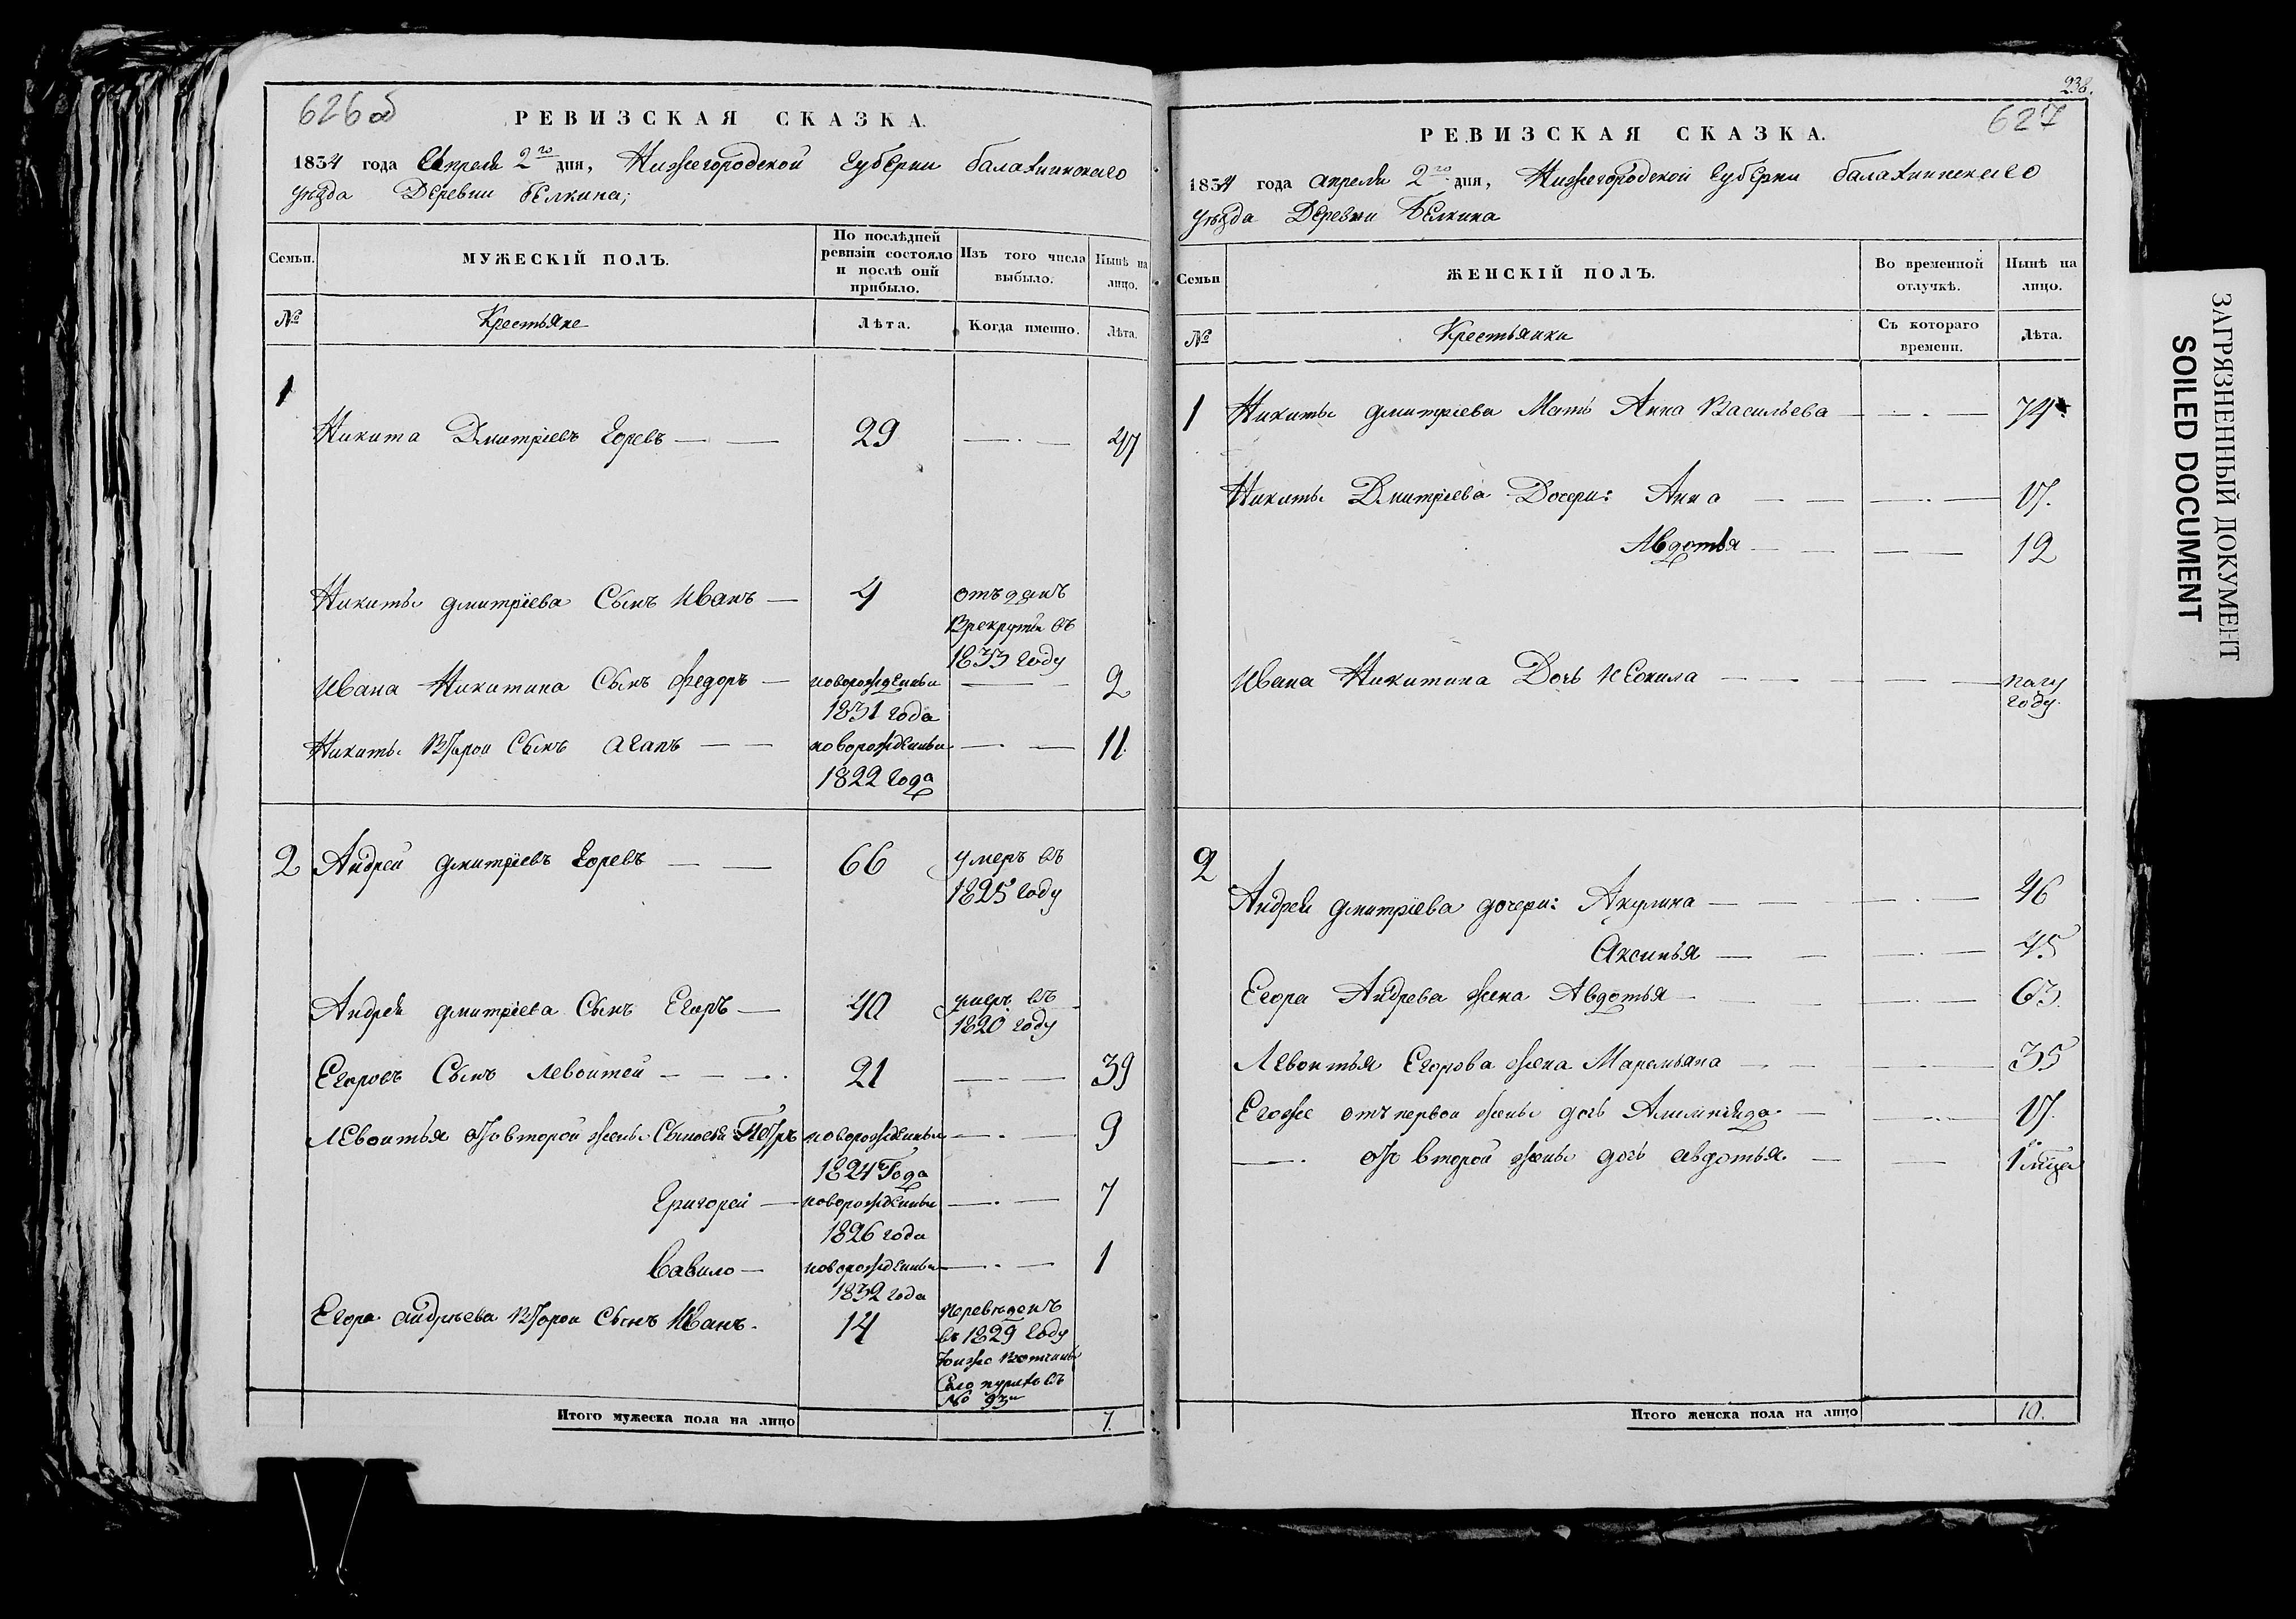 626 об
РЕВИЗСКАЯ СКАЗКА.
1834 года Апреля 2го дня, Нижегородской губерни балахнинскаго
уѣзда Деревни Белкина;
Семьи.
МУЖЕСКІЙ ПОЛЪ.
По послѣдней ревизіи состояло и послѣ оній прибыло.
Изъ того числа выбыло.
Нынѣ на лицо.
№
Крестьяне
Лѣта.
Когда именно.
Лѣта.
1
Никита Дмитріевъ Горевъ — — 29 — . — 47
Никиты дмитріева Сынъ Иванъ — 4 отъданъ
Врекруты въ
1833 году
Ивана Никитина Сынъ Федоръ — новорожденны — 2
1831 года
Никиты Второй Сынъ Агапъ — — новорожденны — . — 11.
1822 года
2 Андрей дмитріевъ Горевъ — — 66 умеръ въ
1825 году
Андрея дмитріева Сынъ Егоръ — 40 умеръ въ
1820 году
Егоровъ Сынъ Левонтей — — . 21 — . — 39
Левонтья от второй жены Сыновья Петръ новорожденны — . — 9
1824 Года
Григорей — новорожденны — . — 7
1826 года
Вавило — новорожденны — . — 1
1832 года
Егора андрѣева Второй Сынъ Иванъ. 14 переведенъ
въ 1829 году
тоиже Вотчины
Село пурехъ въ
№ 93й
Итого мужеска пола на лицо 7.
238.
627
РЕВИЗСКАЯ СКАЗКА.
1834 года апреля 2го дня, Нижегородской губерни балахнинскаго
уѣзда Деревни Белкина
Семьи
ЖЕНСКІЙ ПОЛЪ.
Во временной отлучкѣ.
Нынѣ на лицо.
№
Крестьянки
Съ котораго времени.
Лѣта.
1 Никиты дмитріева Мать Анна Васильева — . — 74.
Никиты Дмитріева Дочери: Анна — — — . — 17.
Авдотья — — — — 12
Ивана Никитина Дочь Неонила — — — — полу
году.
2
Андрея дмитріева дочери: Акулина — — — . — 46
Аксинья — — — . — 45
Егора Андрева жена Авдотья — — — . — 63.
Левонтья Егорова жена Маремьяна — . — — . — 35
Егоже отъ первои жены дочь Алимпіяда. — — . — 17.
— . от второй жены дочь авдотья. — — 1 мѣцъ
Итого женска пола на лицо 10.
ЗАГРЯЗНЕННЫЙ ДОКУМЕНТ
SOILED DOCUMENT